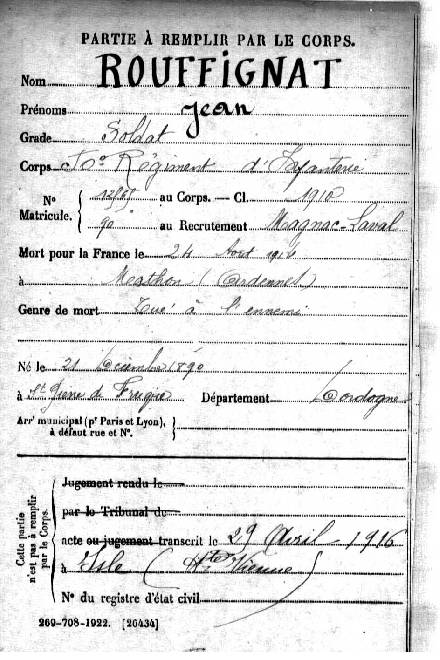 PARTIE À REMPLIR PAR LE CORPS.
Nom ROUFFIGNAT
Prénoms Jean
Grade Soldat
Corps 50e Régiment d'Infanterie
No Matricule. au Corps. — Cl. 1910
90 au Recrutement Magnac-Laval
Mort pour la France le 24 Août 1914
à (Ardennes)
Genre de mort Tué à l'ennemi
Né le 21 Décembre 1890
à St Pierre de Frugie Département Dordogne
Arrt municipal (pr Paris et Lyon), à défaut rue et No.
Cette partie n'est pas à remplir par le Corps.
Jugement rendu le
par le Tribunal de
acte ou jugement transcrit le 29 Avril 1916
à Isle (Hte Vienne)
No du registre d'état civil
269-708-1922. [26434]